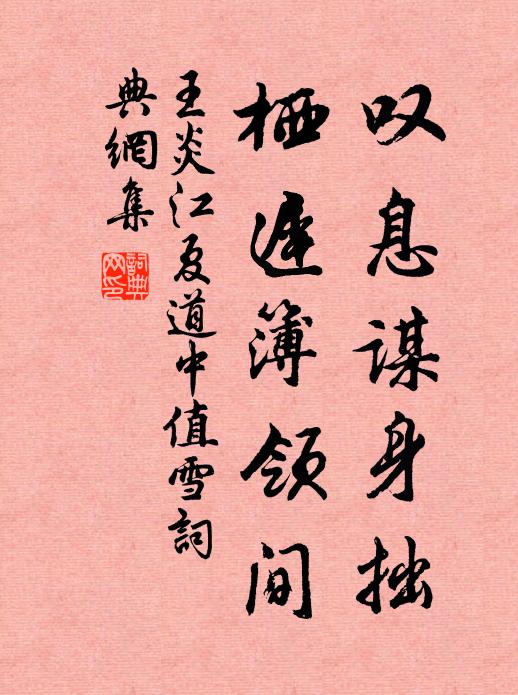 叹息谋身拙
栖迟簿领间
王炎江夏道中值雪词
典網集
詞典網印